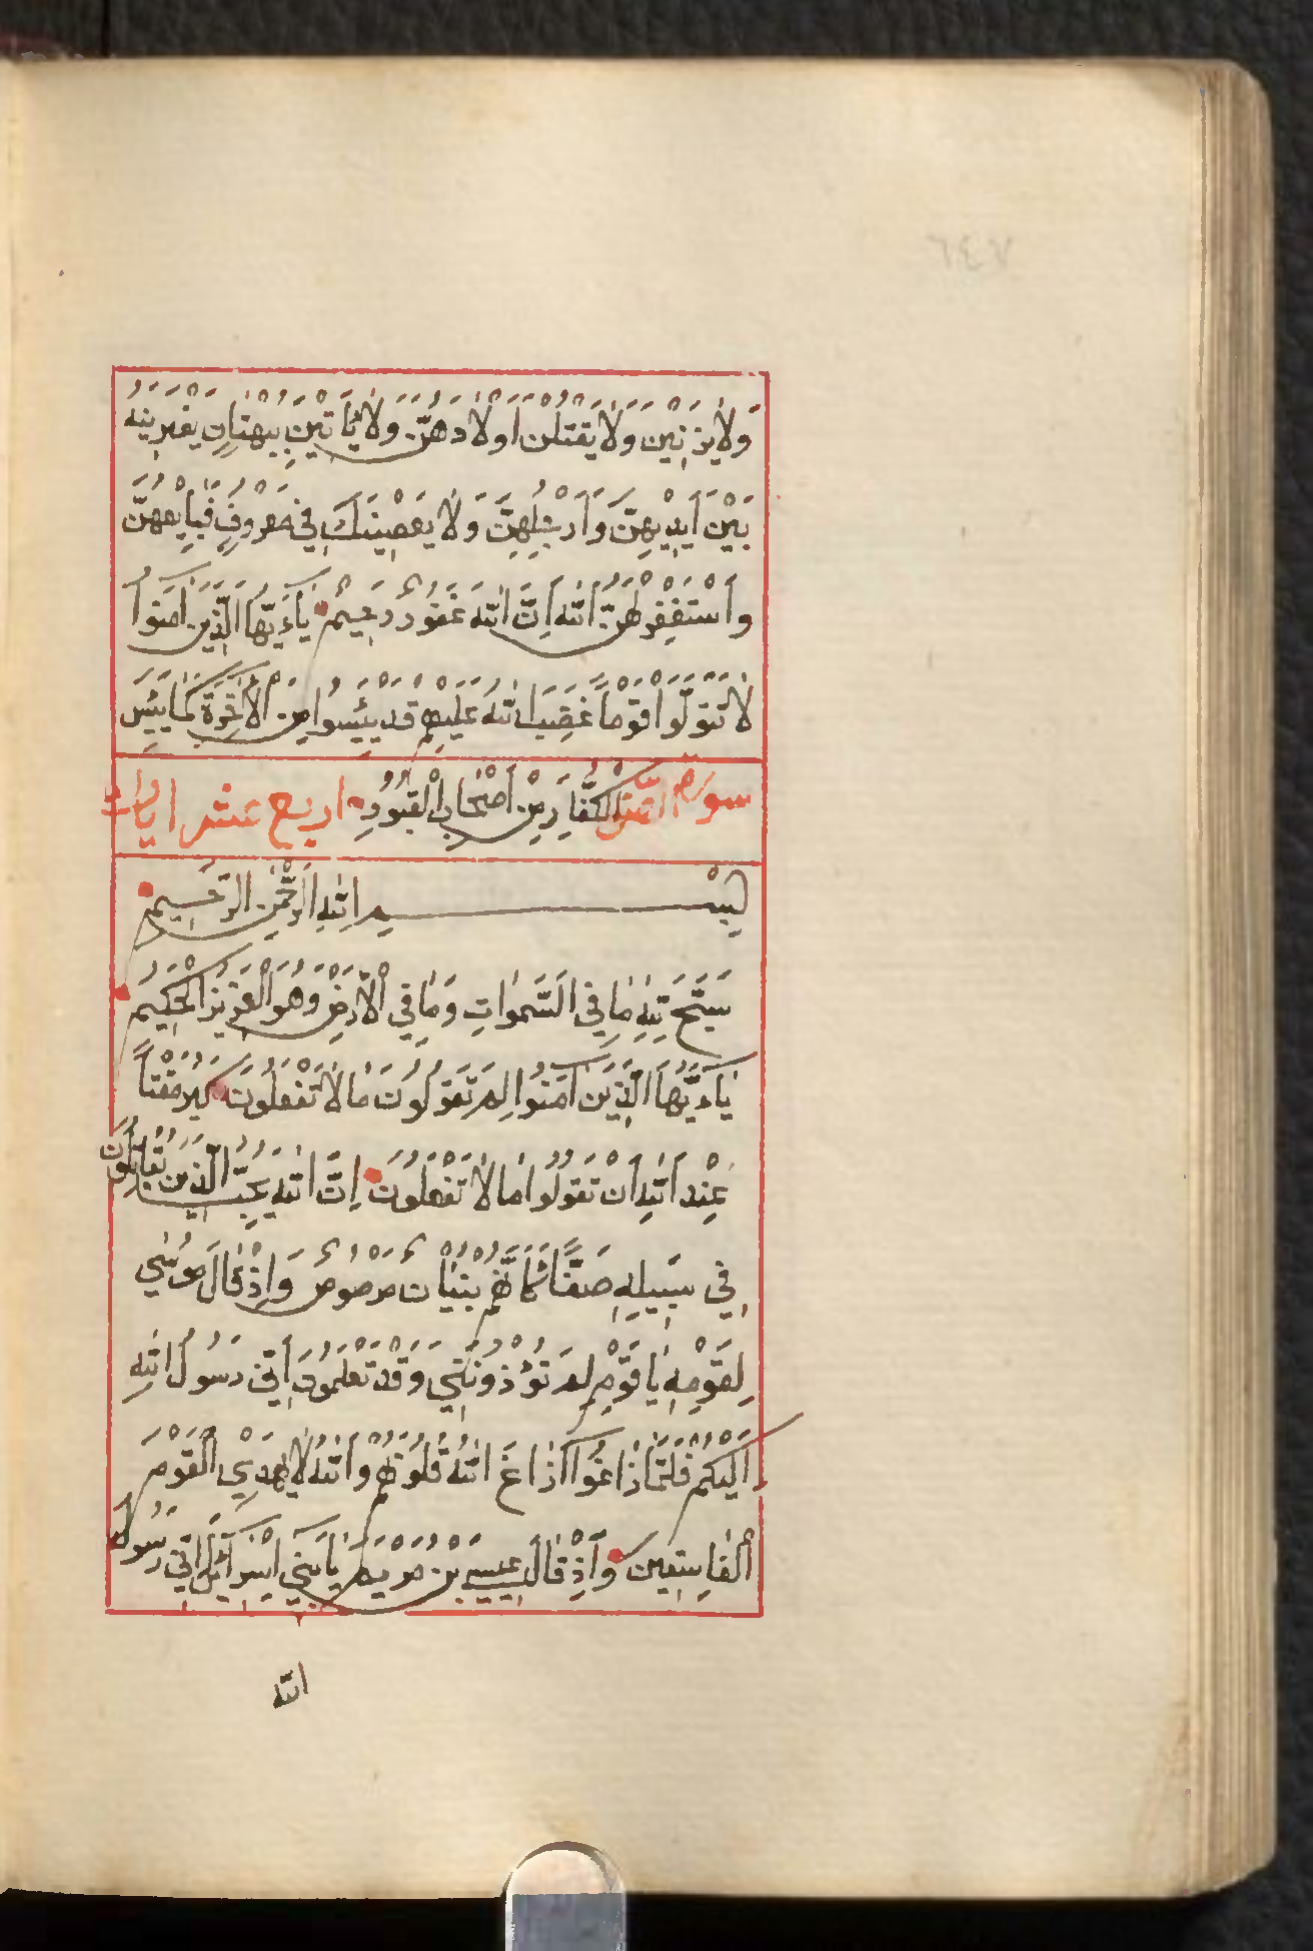 ٦٤٧
وَلَا يَزْنِيْنَ وَلَا يَقْتُلْنَ اَوْلَادَهُنَّ وَلَا يَاْتِيْنَ بِبُهْتَانٍ يَفْتَرِيْنَهُ
بَيْنَ اَيْدِيْهِنَّ وَاَرْجُلِهِنَّ وَلَا يَعْصِيْنَكَ فِيْ مَعْرُوْفٍ فَبَايِعْهُنَّ
وَاسْتَغْفِرْ لَهُنَّ اللهَ اِنَّ اللهَ غَفُوْرٌ رَحِيْمٌ يَاءَيُّهَا الَّذِيْنَ اٰمَنُوْا
لَا تَتَوَلَّوْا قَوْمًا غَضِبَ اللهُ عَلَيْهِمْ قَدْ يَئِسُوْا مِنَ الْاٰخِرَةِ كَمَا يَئِسَ
سورة الصف الْكُفَّارُ مِنْ اَصْحَابِ الْقُبُوْرِ اربع عشر ايات
بِسْمِ اللهِ الرَّحْمٰنِ الرَّحِيْمِ
سَبَّحَ لِلّٰهِ مَا فِي السَّمٰوَاتِ وَمَا فِي الْاَرْضِ وَهُوَ الْعَزِيْزُ الْحَكِيْمُ
يَاءَيُّهَا الَّذِيْنَ اٰمَنُوْا لِمَ تَقُوْلُوْنَ مَا لَا تَفْعَلُوْنَ كَبُرَ مَقْتًا
عِنْدَ اللهِ اَنْ تَقُوْلُوْا مَا لَا تَفْعَلُوْنَ اِنَّ اللهَ يُحِبُّ الَّذِيْنَ يُقَاتِلُوْنَ
فِيْ سَبِيْلِهِ صَفًّا كَاَنَّهُمْ بُنْيَانٌ مَرْصُوْصٌ وَاِذْ قَالَ مُوْسٰي
لِقَوْمِهِ يَا قَوْمِ لِمَ تُؤْذُوْنَنِيْ وَقَدْ تَعْلَمُوْنَ اَنِّيْ رَسُوْلُ اللهِ
اِلَيْكُمْ فَلَمَّا زَاغُوْا اَزَاغَ اللهُ قُلُوْبَهُمْ وَاللهُ لَا يَهْدِي الْقَوْمَ
الْفَاسِقِيْنَ وَاِذْ قَالَ عِيْسَي بْنُ مَرْيَمَ يَا بَنِيْ اِسْرَائِيْلَ اِنِّيْ رَسُوْلُ
الله